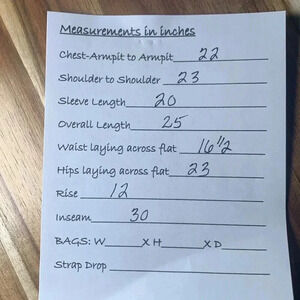 Measurements in inches
Chest-Armpit to Armpit 22
Shoulder to Shoulder 23
Sleeve Length 20
Overall Length 25
Waist laying across flat 16 1/2
Hips laying across flat 23
Rise 12
Inseam 30
BAGS: W______X H______X D______
Strap Drop